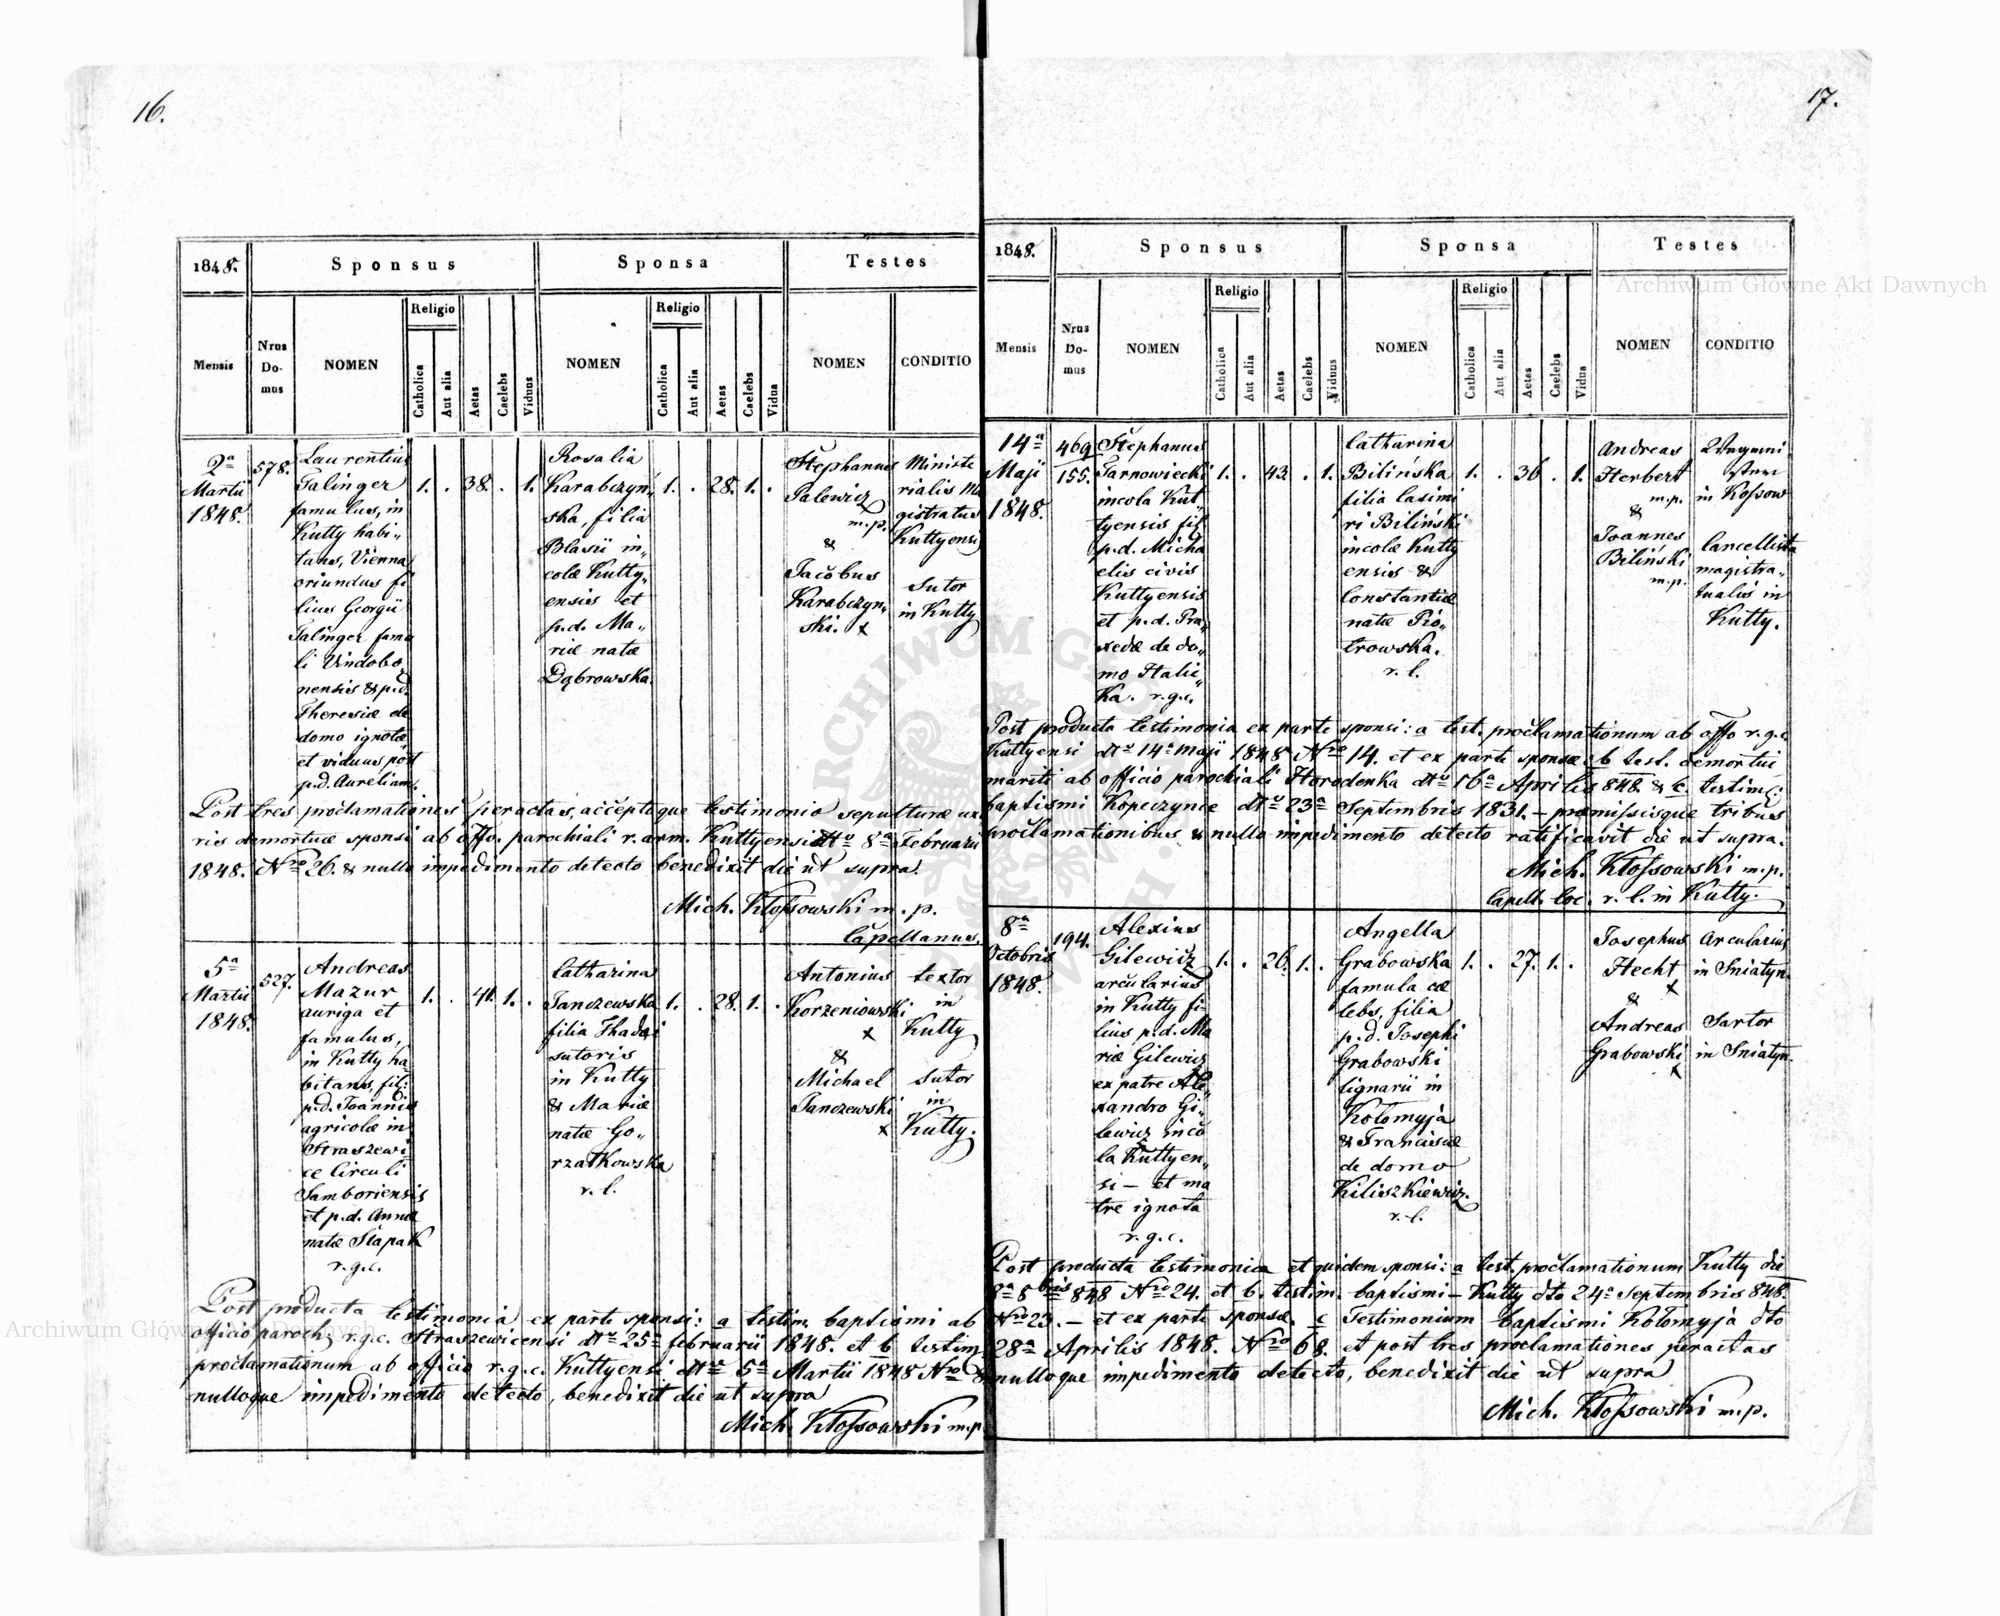 16.
1848.
Sponsus
Sponsa
Testes
Mensis
Nrus Domus
NOMEN
Religio
Catholica
Aut alia
Aetas
Caelebs
Viduus
NOMEN
Religio
Catholica
Aut alia
Aetas
Caelebs
Vidua
NOMEN
CONDITIO
2ª
Martii
1848.
578.
Laurentius
Talinger
famulus, in
Kutty habi„
tans, Vienna
oriundus fi
lius Georgii
Talinger famu
li Vindobo„
nensis & p.d.
Theresiæ de
domo ignotæ
et viduus post
p.d. Aureliam.
1. . 38. . 1.
Rosalia
Karabczyń„
ska, filia
Blasii in„
colæ Kutty„
ensis et
p.d. Ma„
riæ natæ
Dąbrowska.
1. . 28. 1. .
Stephanus
Palewicz
m.p.
&
Jacobus
Karabczyn„
ski. x
Ministe
rialis Ma
gistratus
Kuttyensi
Sutor
in Kutty
Post tres proclamationes peractas, acceptoque testimonio sepulturæ uxo
ris demortuæ sponsi ab offo. parochiali r. arm. Kuttyensi dtº 8ª Februarii
1848. Nrº 26. & nullo impedimento detecto benedixit die ut supra.
Mich. Kłossowski m.p.
Capellanus.
5ª
Martii
1848.
527.
Andreas
Mazur
auriga et
famulus,
in Kutty ha
bitans, fil:
p.d. Joannis
agricolæ in
Straszewi
ce Circuli
Samboriensis
et p.d. Annæ
natæ Slapak
r.g.c.
1. . 41. 1. .
Catharina
Janczewska
filia Thadæi
sutoris
in Kutty
& Mariæ
natæ Go„
rzałkowska
r. l.
1. . 28. 1. .
Antonius
Korzeniowski
x
&
Michael
Janczewski
x
textor
in
Kutty
Sutor
in
Kutty.
Post producta testimonia ex parte sponsi: a testim. baptismi ab
officio paroch. r.g.c. Straszewicensi dtº 25ª februarii 1848. et b testim.
proclamationum ab officio r.g.c. Kuttyensi dtº 5ª Martii 1848 Nrº 8
nulloque impedimento detecto, benedixit die ut supra
Mich. Kłossowski m.p.
17.
1848.
Sponsus
Sponsa
Testes
Mensis
Nrus Domus
NOMEN
Religio
Catholica
Aut alia
Aetas
Caelebs
Viduus
NOMEN
Religio
Catholica
Aut alia
Aetas
Caelebs
Vidua
NOMEN
CONDITIO
14ª
Maji
1848.
469
155.
Stephanus
Tarnowiecki
incola Kut„
tyensis fil
p.d. Micha
elis civis
Kuttyensis
et p.d. Pra„
xedæ de do„
mo Halic„
ka. r.g.c.
1. . 43. . 1.
Catharina
Bilińska
filia Casimi
ri Biliński
incolæ Kutty
ensis &
Constantiæ
natæ Pio„
trowska.
r. l.
1. . 36 . 1.
Andreas
Herbert
m.p.
&
Joannes
Biliński
m.p.
in Kossow
Cancellista
magistra„
tualis in
Kutty.
Post producta testimonia ex parte sponsi: a test. proclamationum ab offo r.g.c.
Kuttyensi dtº 14ª Maji 1848 Nrº 14. et ex parte sponsæ b test. demortui
mariti ab officio parochiali Horodenka dtº 16ª Aprilis 848. & c. testim:
baptismi Kopeczynce dtº 23ª Septembris 1831. – præmissisque tribus
proclamationibus & nullo impedimento detecto ratificavit die ut supra.
Mich. Kłossowski m.p.
Capell. loc. r. l. in Kutty.
8ª
Octobris
1848.
194.
Alexius
Gilewicz
arcularius
in Kutty fi„
lius p.d. Ma
riæ Gilewicz
ex patre Ale„
xandro Gi„
lewicz inco
la Kuttyen„
si – et ma
tre ignota
r.g.c.
1. . 26. 1. .
Angella
Grabowska
famula cæ
lebs, filia
p.d. Josephi
Grabowski
lignarii in
Kołomyja
& Franciscæ
de domo
Kiliszkiewicz.
r. l.
1. . 27. 1. .
Josephus
Hecht
x
&
Andreas
Grabowski
x
arcularius
in Sniatyn.
Sartor
in Sniatyn.
Post producta testimonia et quidem sponsi: a test. proclamationum Kutty die
8ª 8bris 848 Nrº 24. et b. testim. baptismi – Kutty dto 24ª Septembris 848.
Nrº 23. – et ex parte sponsæ. c Testimonium baptismi Kołomyja dto
28ª Aprilis 1848. Nrº 68. et post tres proclamationes peractas
nulloque impedimento detecto, benedixit die ut supra
Mich. Kłossowski m.p.
Archiwum Główne Akt Dawnych
Archiwum Główne Akt Dawnych